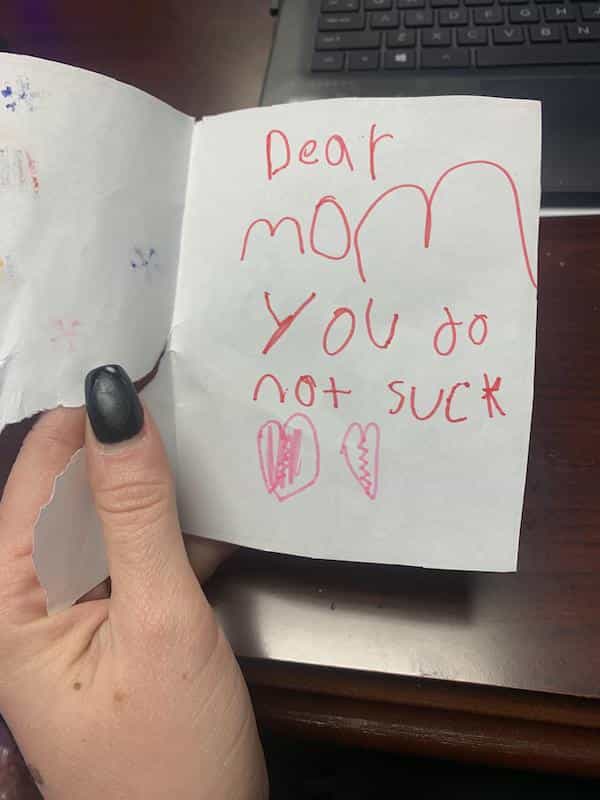 Dear
mom
you do
not suck